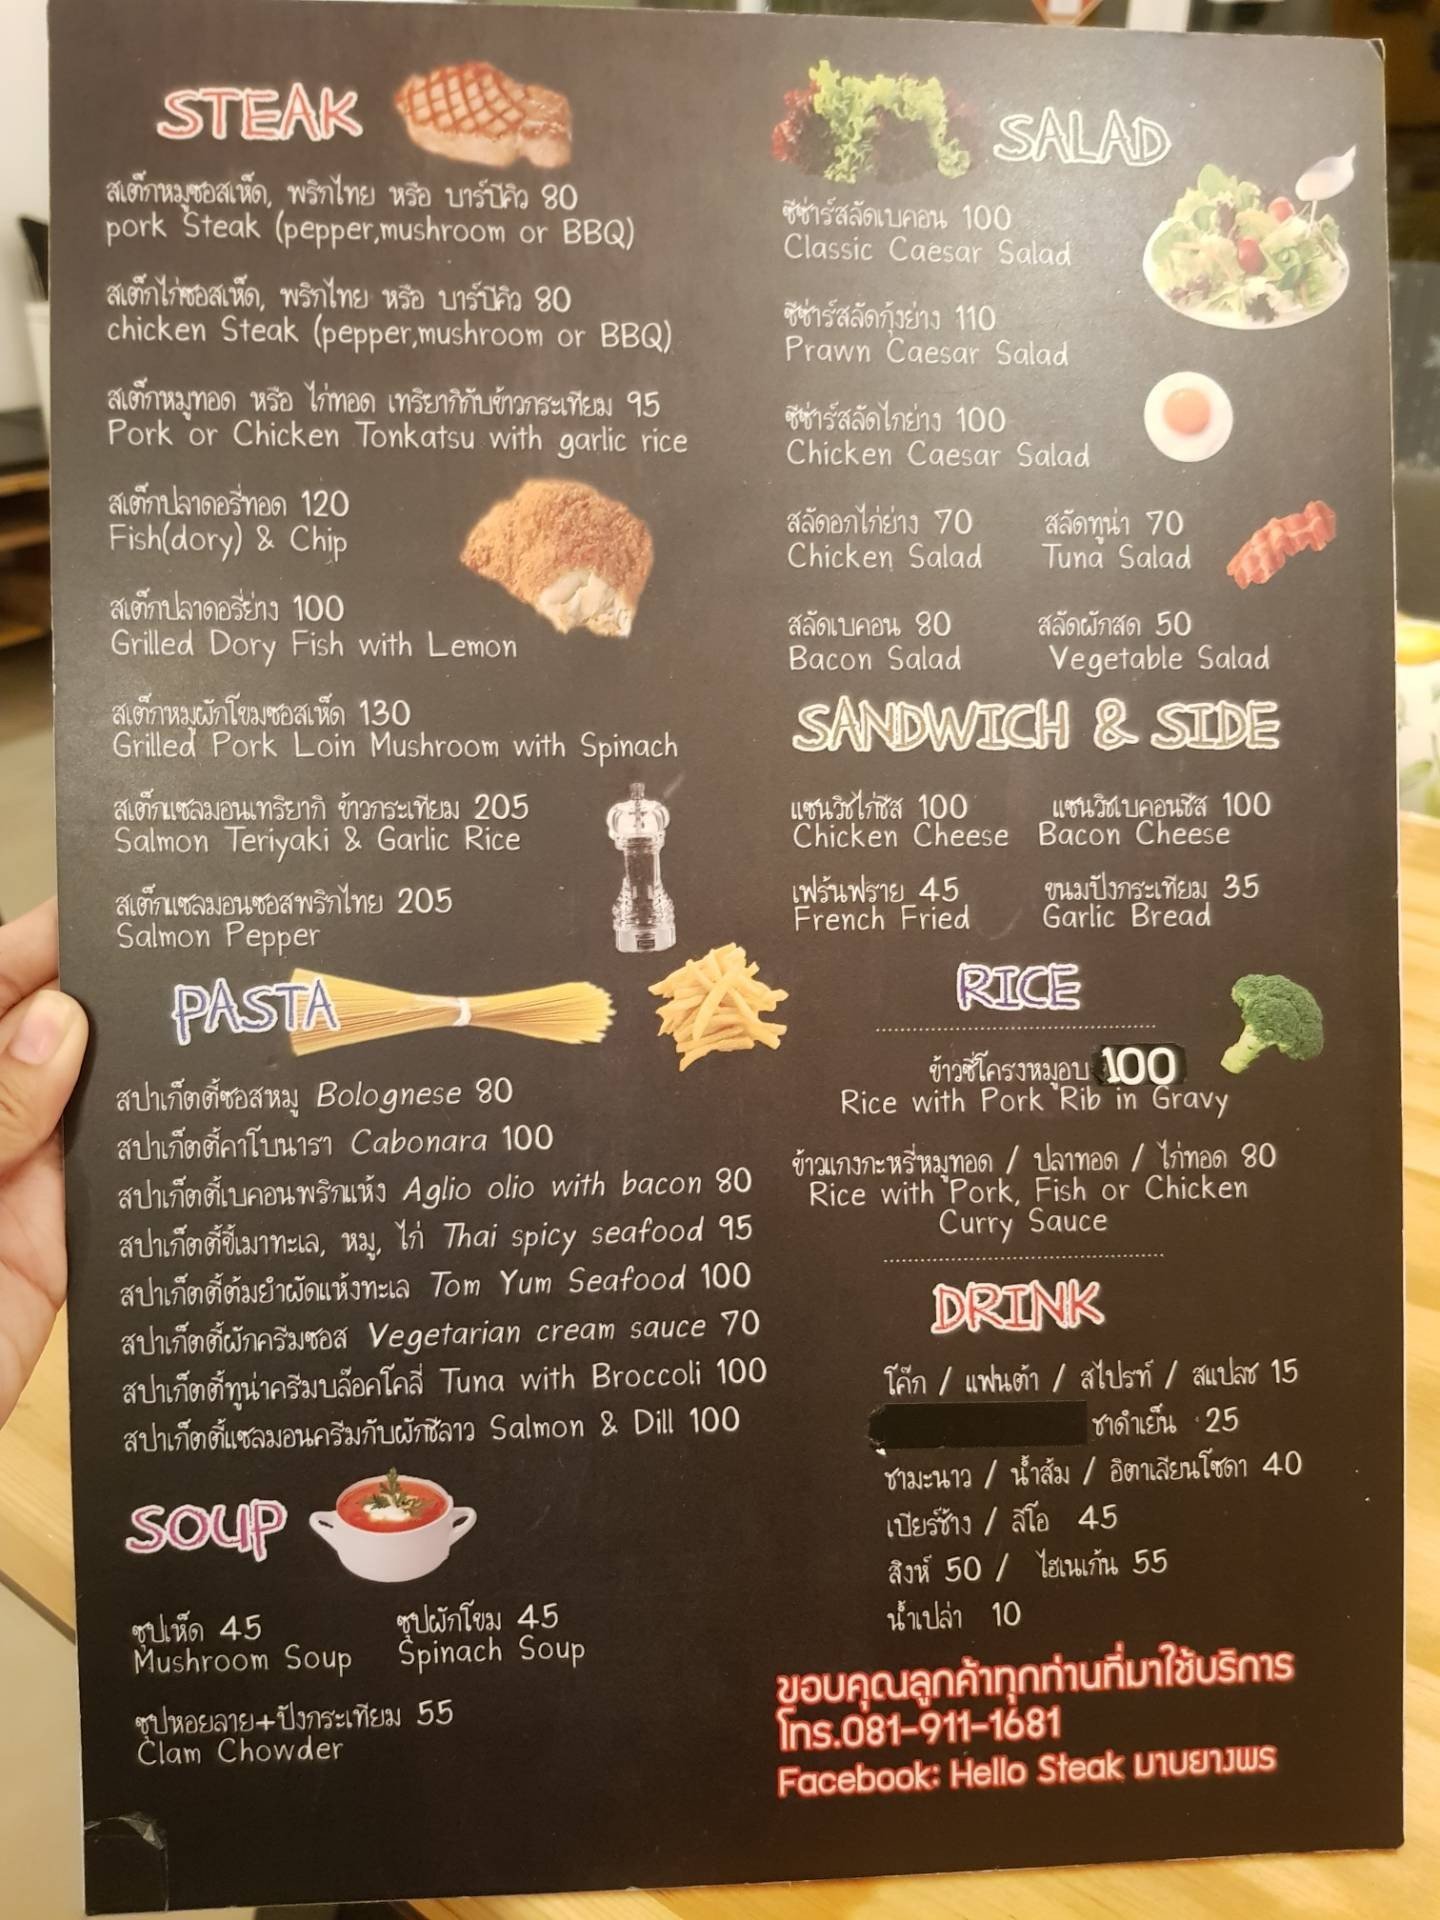 STEAK
สเต็กหมูซอสเห็ด, พริกไทย หรือ บาร์บีคิว 80
pork Steak (pepper,mushroom or BBQ)
สเต็กไก่ซอสเห็ด, พริกไทย หรือ บาร์บีคิว 80
chicken Steak (pepper,mushroom or BBQ)
สเต็กหมูทอด หรือ ไก่ทอด เทริยากิกับข้าวกระเทียม 95
Pork or Chicken Tonkatsu with garlic rice
สเต็กปลาดอรี่ทอด 120
Fish(dory) & Chip
สเต็กปลาดอรี่ย่าง 100
Grilled Dory Fish with Lemon
สเต็กหมูผักโขมซอสเห็ด 130
Grilled Pork Loin Mushroom with Spinach
สเต็กแซลมอนเทริยากิ ข้าวกระเทียม 205
Salmon Teriyaki & Garlic Rice
สเต็กแซลมอนซอสพริกไทย 205
Salmon Pepper
PASTA
สปาเก็ตตี้ซอสหมู Bolognese 80
สปาเก็ตตี้คาโบนารา Cabonara 100
สปาเก็ตตี้เบคอนพริกแห้ง Aglio olio with bacon 80
สปาเก็ตตี้ขี้เมาทะเล, หมู, ไก่ Thai spicy seafood 95
สปาเก็ตตี้ต้มยำผัดแห้งทะเล Tom Yum Seafood 100
สปาเก็ตตี้ผักครีมซอส Vegetarian cream sauce 70
สปาเก็ตตี้ทูน่าครีมบล๊อคโคลี่ Tuna with Broccoli 100
สปาเก็ตตี้แซลมอนครีมกับผักชีลาว Salmon & Dill 100
SOUP
ซุปเห็ด 45 ซุปผักโขม 45
Mushroom Soup Spinach Soup
ซุปหอยลาย+ปังกระเทียม 55
Clam Chowder
SALAD
ซีซ่าร์สลัดเบคอน 100
Classic Caesar Salad
ซีซ่าร์สลัดกุ้งย่าง 110
Prawn Caesar Salad
ซีซ่าร์สลัดไก่ย่าง 100
Chicken Caesar Salad
สลัดอกไก่ย่าง 70 สลัดทูน่า 70
Chicken Salad Tuna Salad
สลัดเบคอน 80 สลัดผักสด 50
Bacon Salad Vegetable Salad
SANDWICH & SIDE
แซนวิชไก่ชีส 100 แซนวิชเบคอนชีส 100
Chicken Cheese Bacon Cheese
เฟร้นฟราย 45 ขนมปังกระเทียม 35
French Fried Garlic Bread
RICE
ข้าวซี่โครงหมูอบ 100
Rice with Pork Rib in Gravy
ข้าวแกงกะหรี่หมูทอด / ปลาทอด / ไก่ทอด 80
Rice with Pork, Fish or Chicken
Curry Sauce
DRINK
โค๊ก / แฟนต้า / สไปรท์ / สแปลช 15
ชาดำเย็น 25
ชามะนาว / น้ำส้ม / อิตาเลียนโซดา 40
เบียร์ช้าง / ลีโอ 45
สิงห์ 50 / ไฮเนเก้น 55
น้ำเปล่า 10
ขอบคุณลูกค้าทุกท่านที่มาใช้บริการ
โทร.081-911-1681
Facebook: Hello Steak มาบยางพร